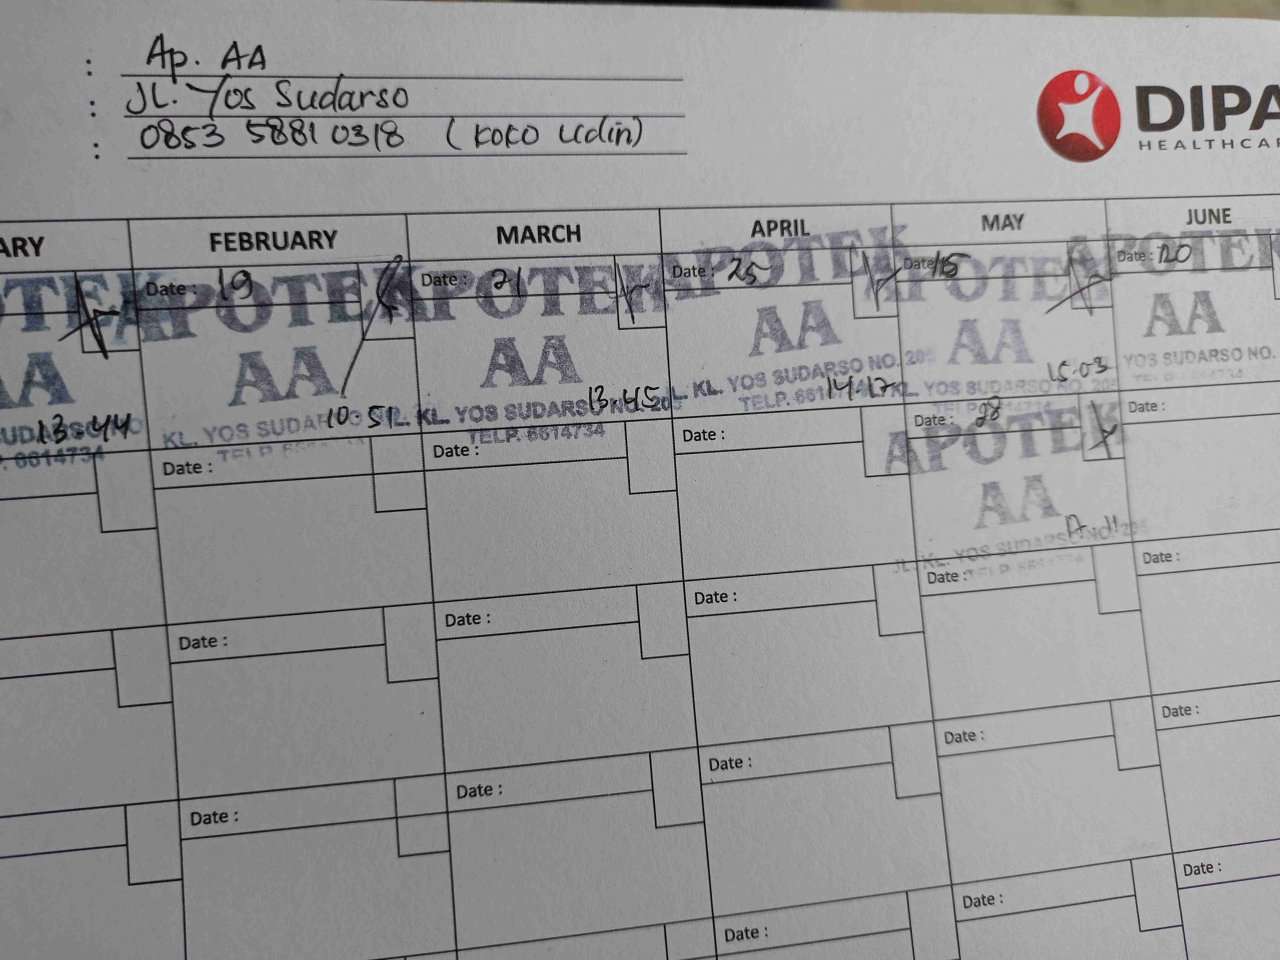 : Ap. AA
: JL. Yos Sudarso
: 0853 5881 0318 (Koko Udin)
DIPA
HEALTHCAR
ARY FEBRUARY MARCH APRIL MAY JUNE
Date: 19 Date: 21 Date: 25 Date: 15 Date: 20
APOTEK APOTEK APOTEK APOTEK APOTEK
AA AA AA AA AA AA
13.44 10.51 13.45 14.17 15.03
KL. YOS SUDARSO KL. YOS SUDARSO NO. 205 KL. YOS SUDARSO NO. 205 KL. YOS SUDARSO NO. 205 YOS SUDARSO NO.
6614734 TELP. TELP. 6614734 TELP. 6614
Date : Date : Date : Date: 28 Date:
APOTEK
AA
JL. KL. YOS SUDARSO NO. 205
TELP.
Date : Date : Date : Date : Date :
Date : Date : Date : Date : Date :
Date : Date : Date :